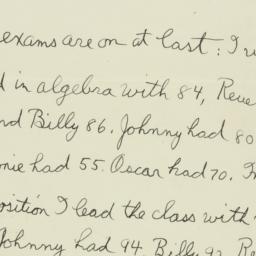 exams are on at last: I
in algebra with 84,
Billy 86. Johnny had 80
had 55. Oscar had 70.
I lead the class with
Johnny had 94. Billy 92,